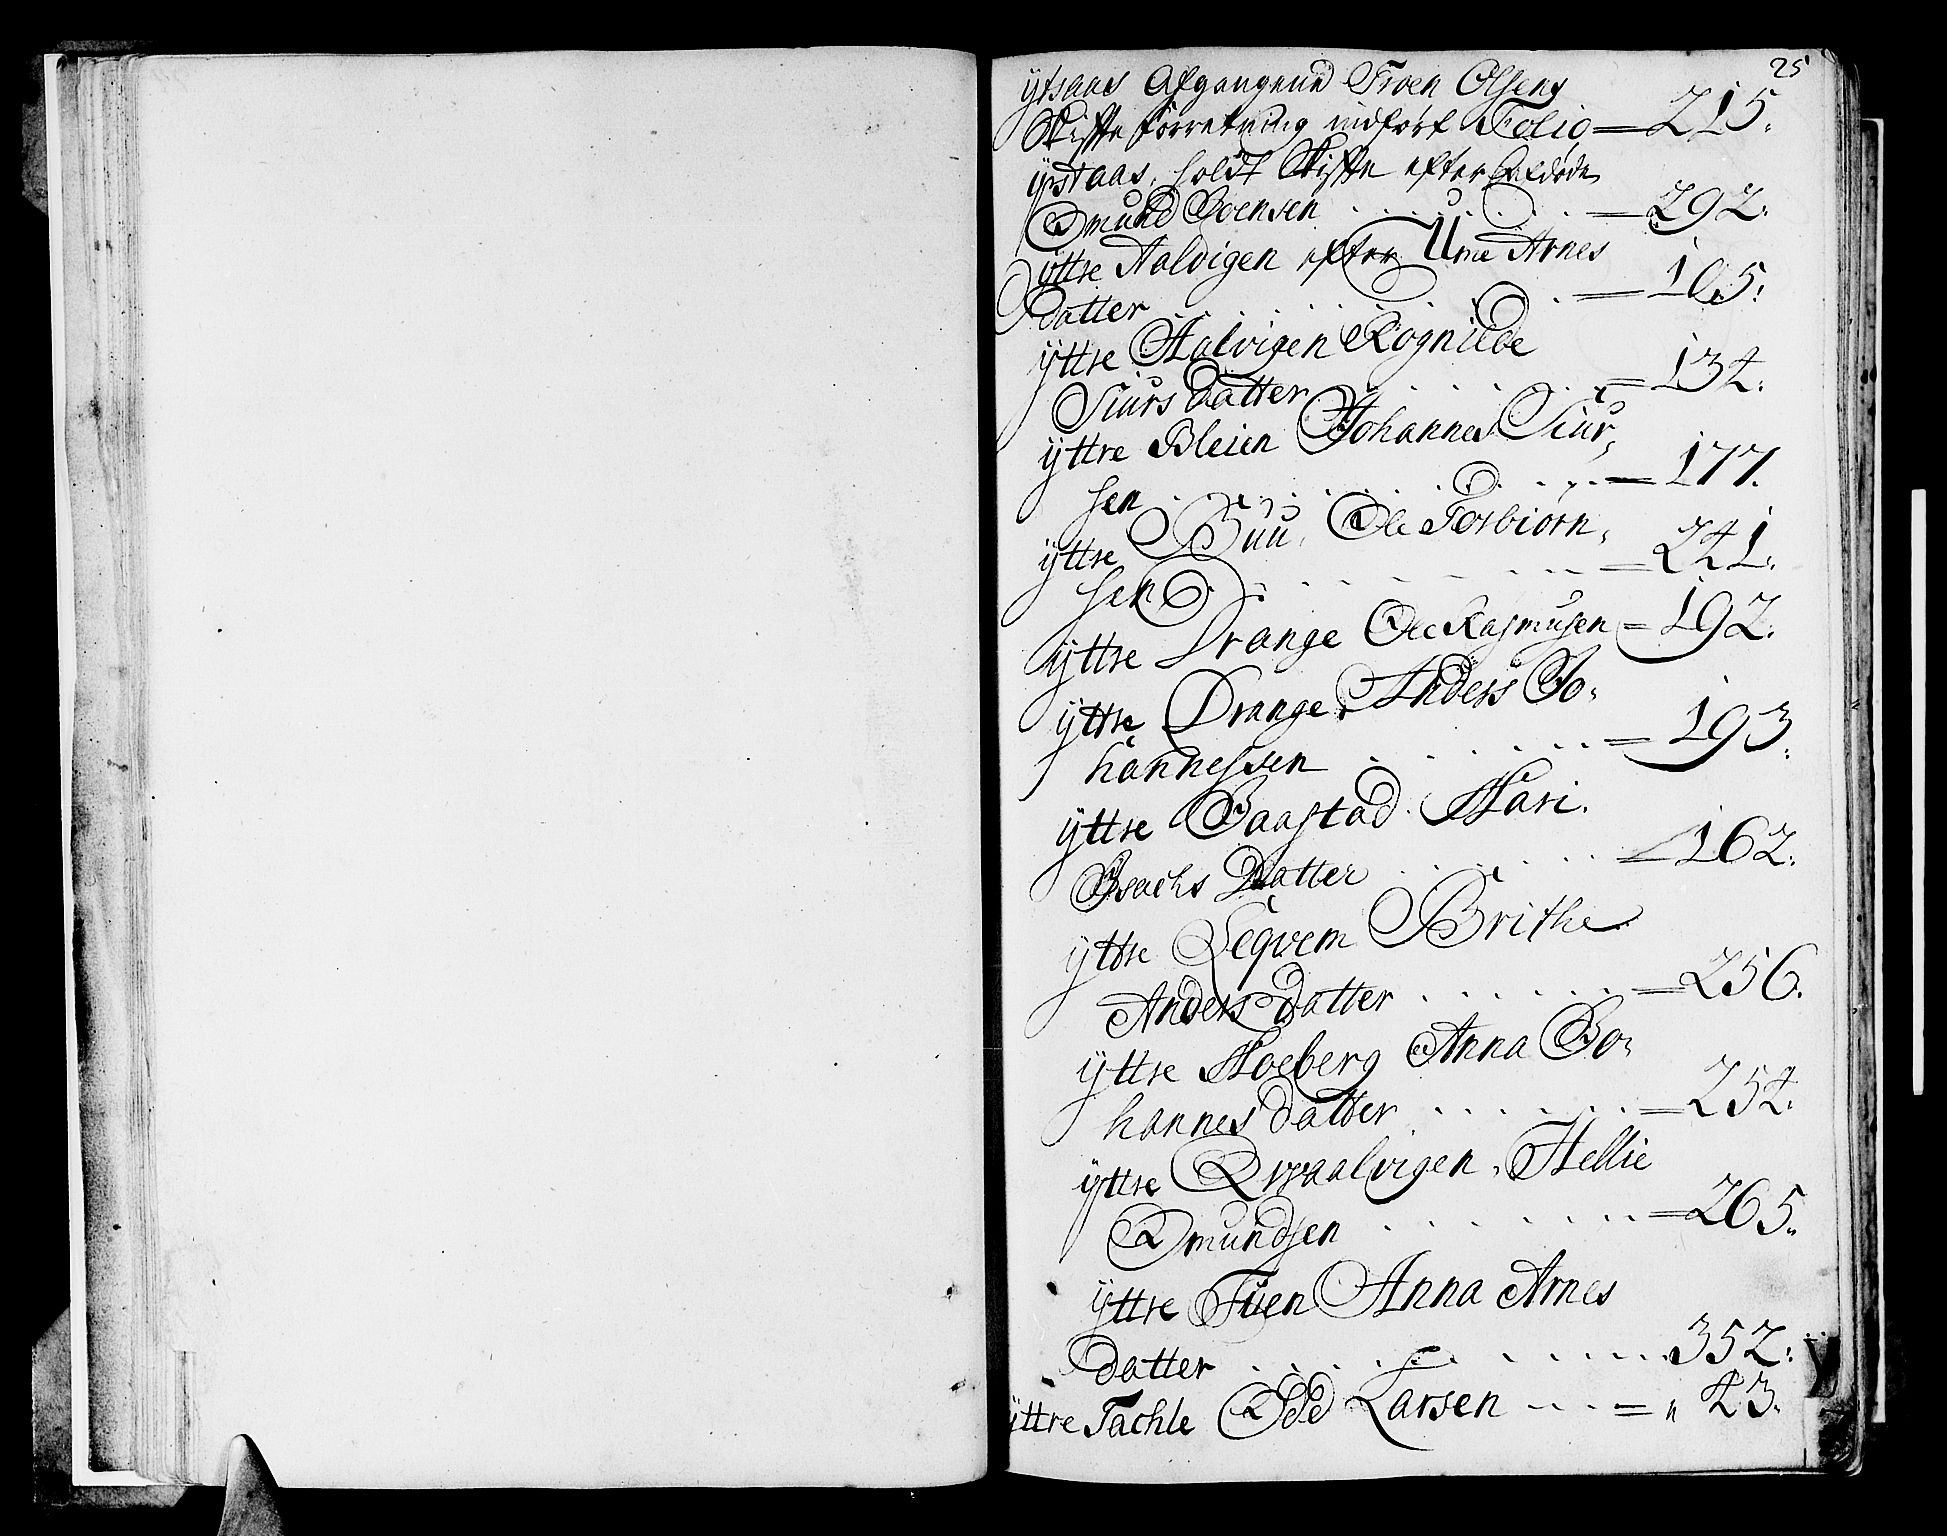 25
ytsaas Afgangne Troen Olsens
Skifte forretning indført Folio = 215.
ystaas, holdt Skifte efter Saldøde
Omund Joensen . . . . . . = 292.
yttre Aalvigen efter Une Arnes
datter . . . . . . . = 105.
yttre Aalvigen Rognilde
Siurs datter . . . . . = 134.
yttre Bleien Johannes Siur,
sen . . . . . . . = 177.
yttre Buu, Ole Torbiørn,
sen . . . . . . . = 241.
yttre Drange Ole Rasmusen = 192.
yttre Drange, Anders Jo,
hannessen . . . . . . = 193.
yttre Baastad Mari
Isachs Datter . . . . . = 162.
yttre Seqvem Brithe
Anders datter . . . . . = 256.
yttre Moeberg Anna Jo,
hannes datter . . . . . = 254.
yttre Aalvigen, Hellie
Omundsen . . . . . . = 265.
yttre Tuen Anna Arnes
datter . . . . . . . 352.
yttre Tachle Odd Larsen . . . = " 43.